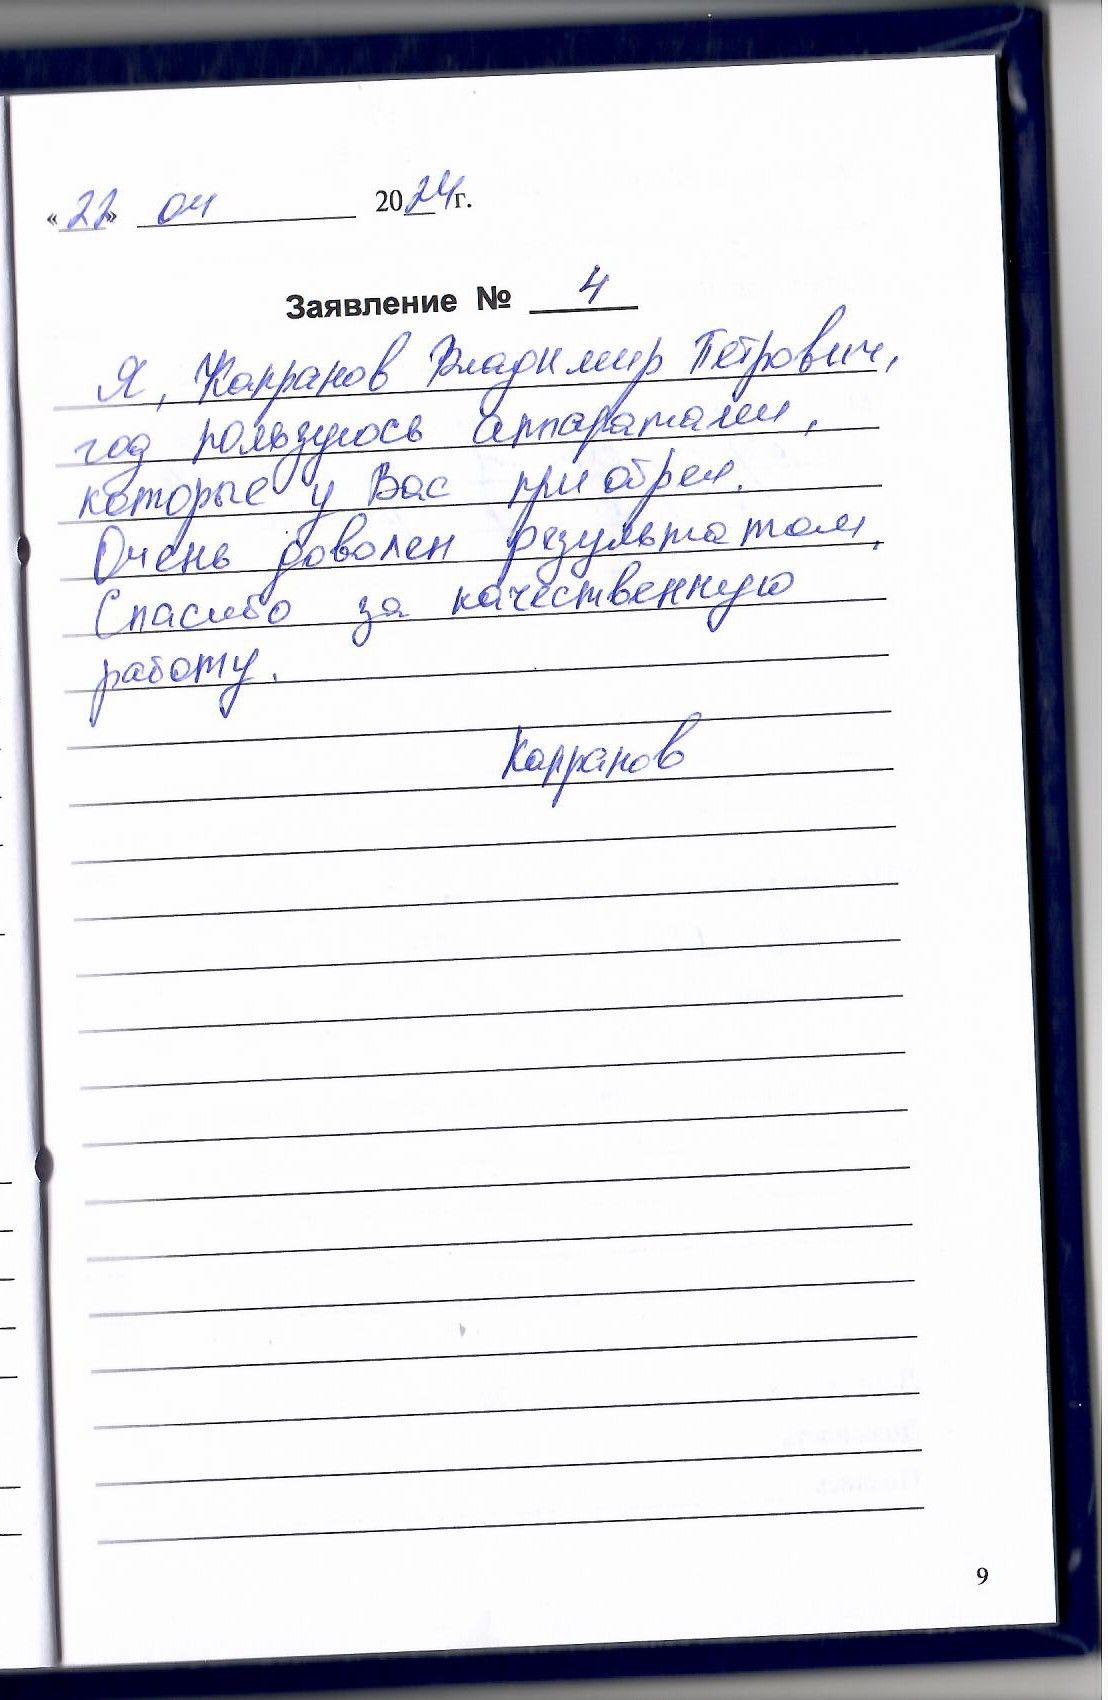 «22» 04 2024г.
Заявление № 4
Я, Капранов Владимир Петрович,
год пользуюсь аппаратами,
которые у Вас приобрел.
Очень доволен результатом.
Спасибо за качественную
работу.
Капранов
9